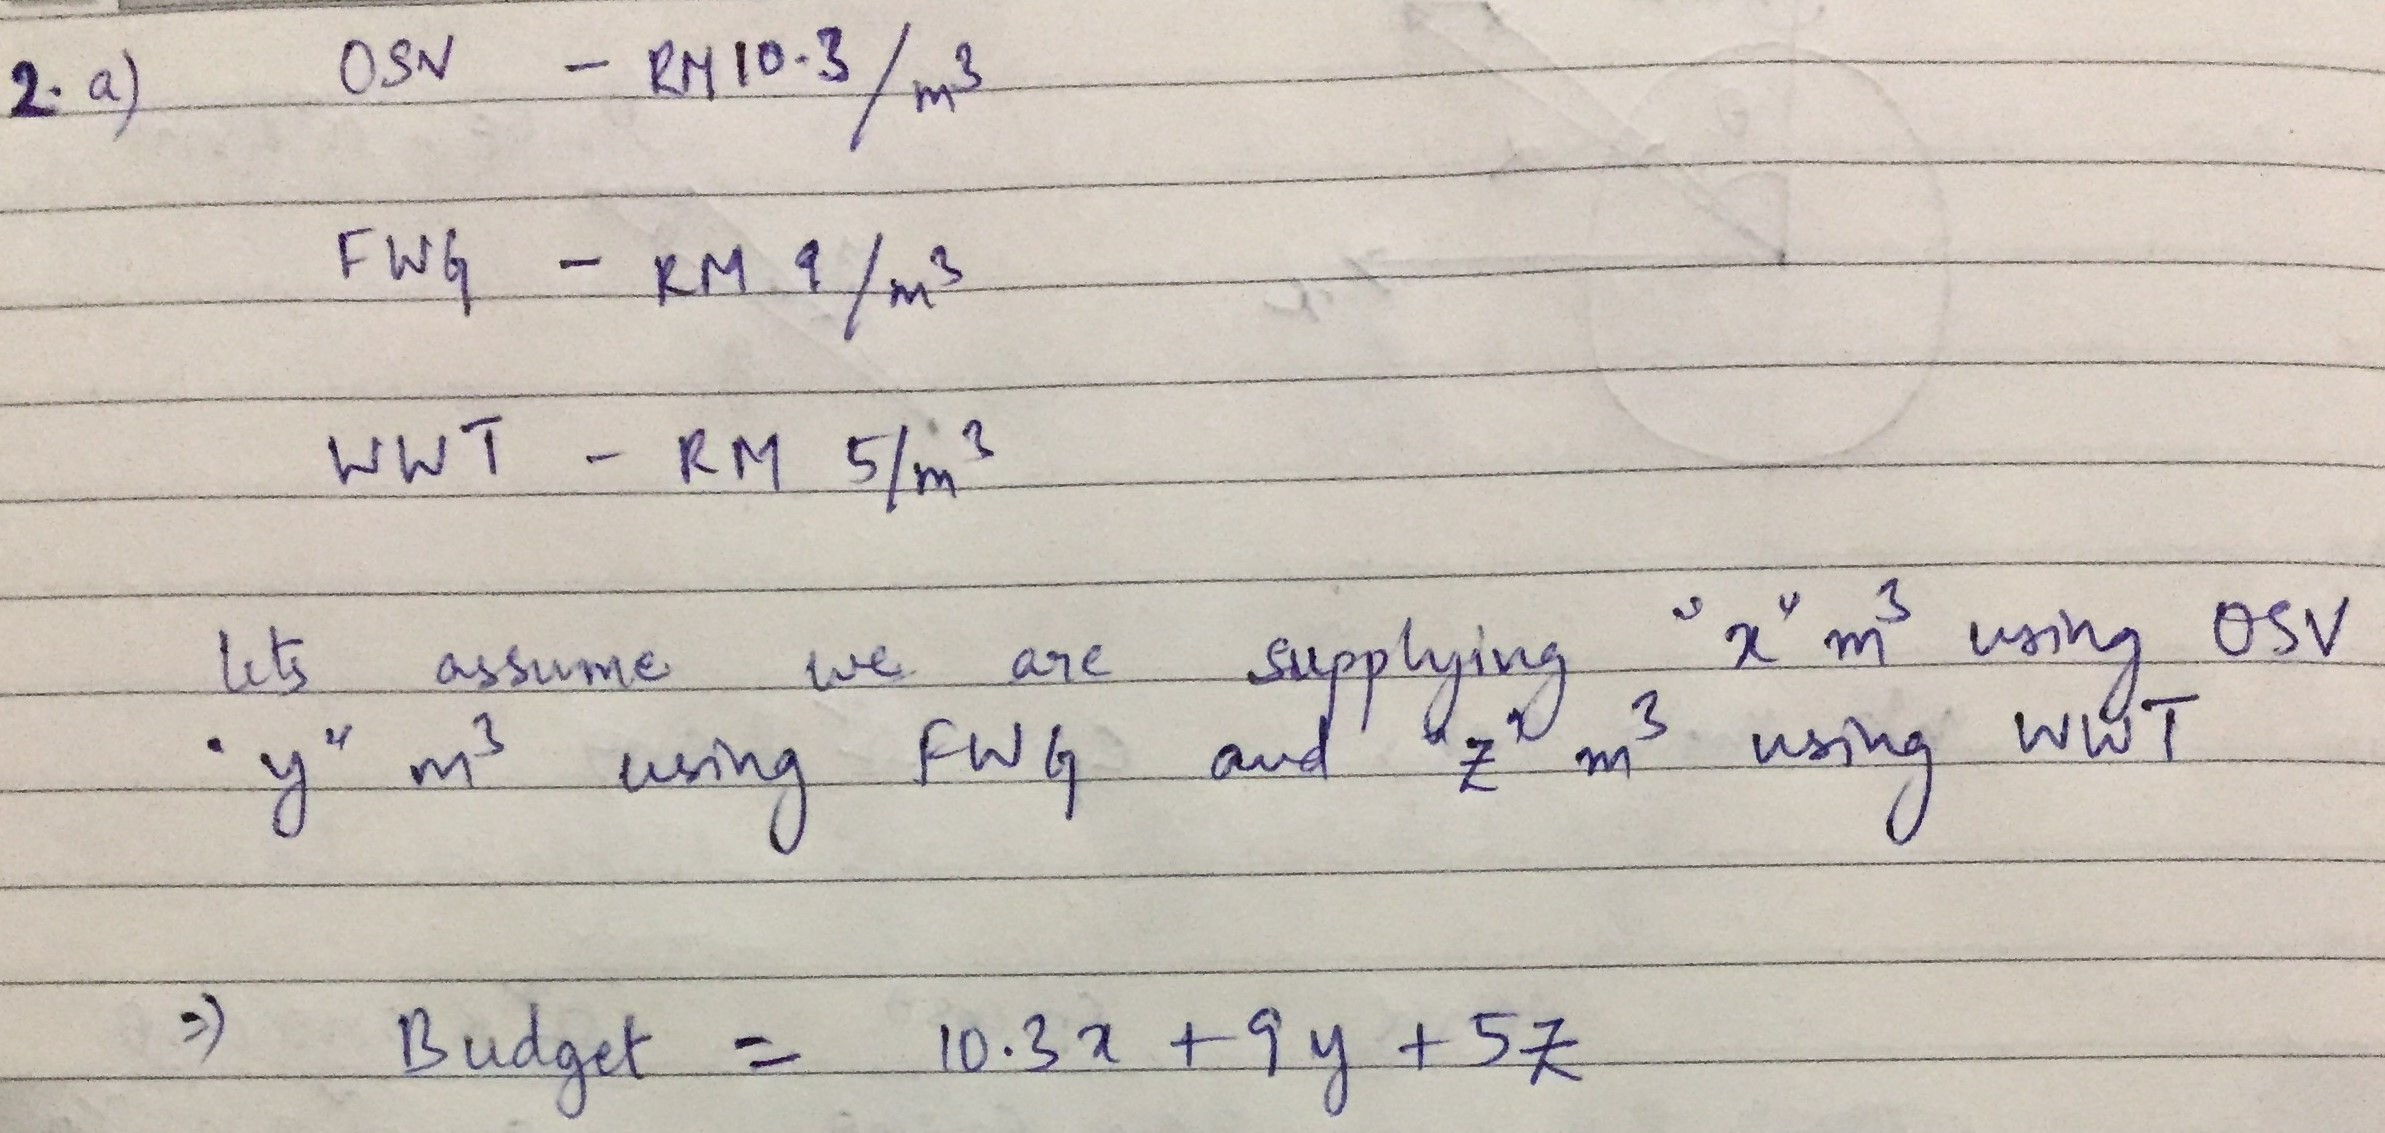 2. a) OSV - RM 10.3/m³
FWG - RM 9/m³
WWT - RM 5/m³
lets assume we are supplying "x" m³ using OSV
"y" m³ using FWG and "z" m³ using WWT
⇒) Budget = 10.3x + 9y + 5z